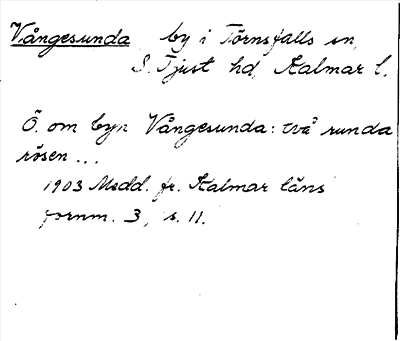 Vångesunda by i Törnsfalls sn,
S. Tjust hd, Kalmar l.
Ö. om byn Vångesunda: två runda
rösen ...
1903 Medd. fr. Kalmar läns
fornm. 3, s. 11.